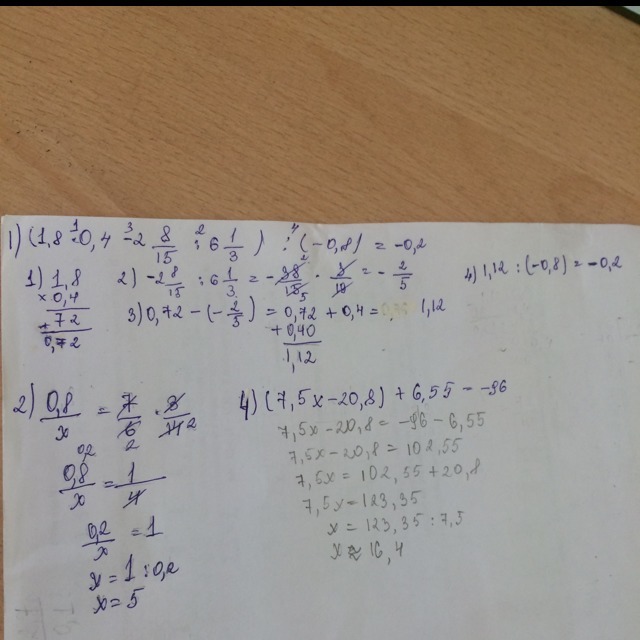 1) (1,8 · 0,4 - 2 8/15 : 6 1/3) : (-0,8) = -0,2
1) 1,8
× 0,4
72
+
0,72
2) -2 8/15 : 6 1/3 = -38/15 · 3/19 = -2/5
3) 0,72 - (-2/5) = 0,72 + 0,4 = 1,12
+ 0,40
1,12
4) 1,12 : (-0,8) = -0,2
2) 0,8/x = 7/6 · 3/14
0,8/x = 1/4
0,2/x = 1
x = 1 : 0,2
x = 5
4) (7,5x - 20,8) + 6,55 = -96
7,5x - 20,8 = -96 - 6,55
7,5x - 20,8 = 102,55
7,5x = 102,55 + 20,8
7,5x = 123,35
x = 123,35 : 7,5
x ≈ 16,4